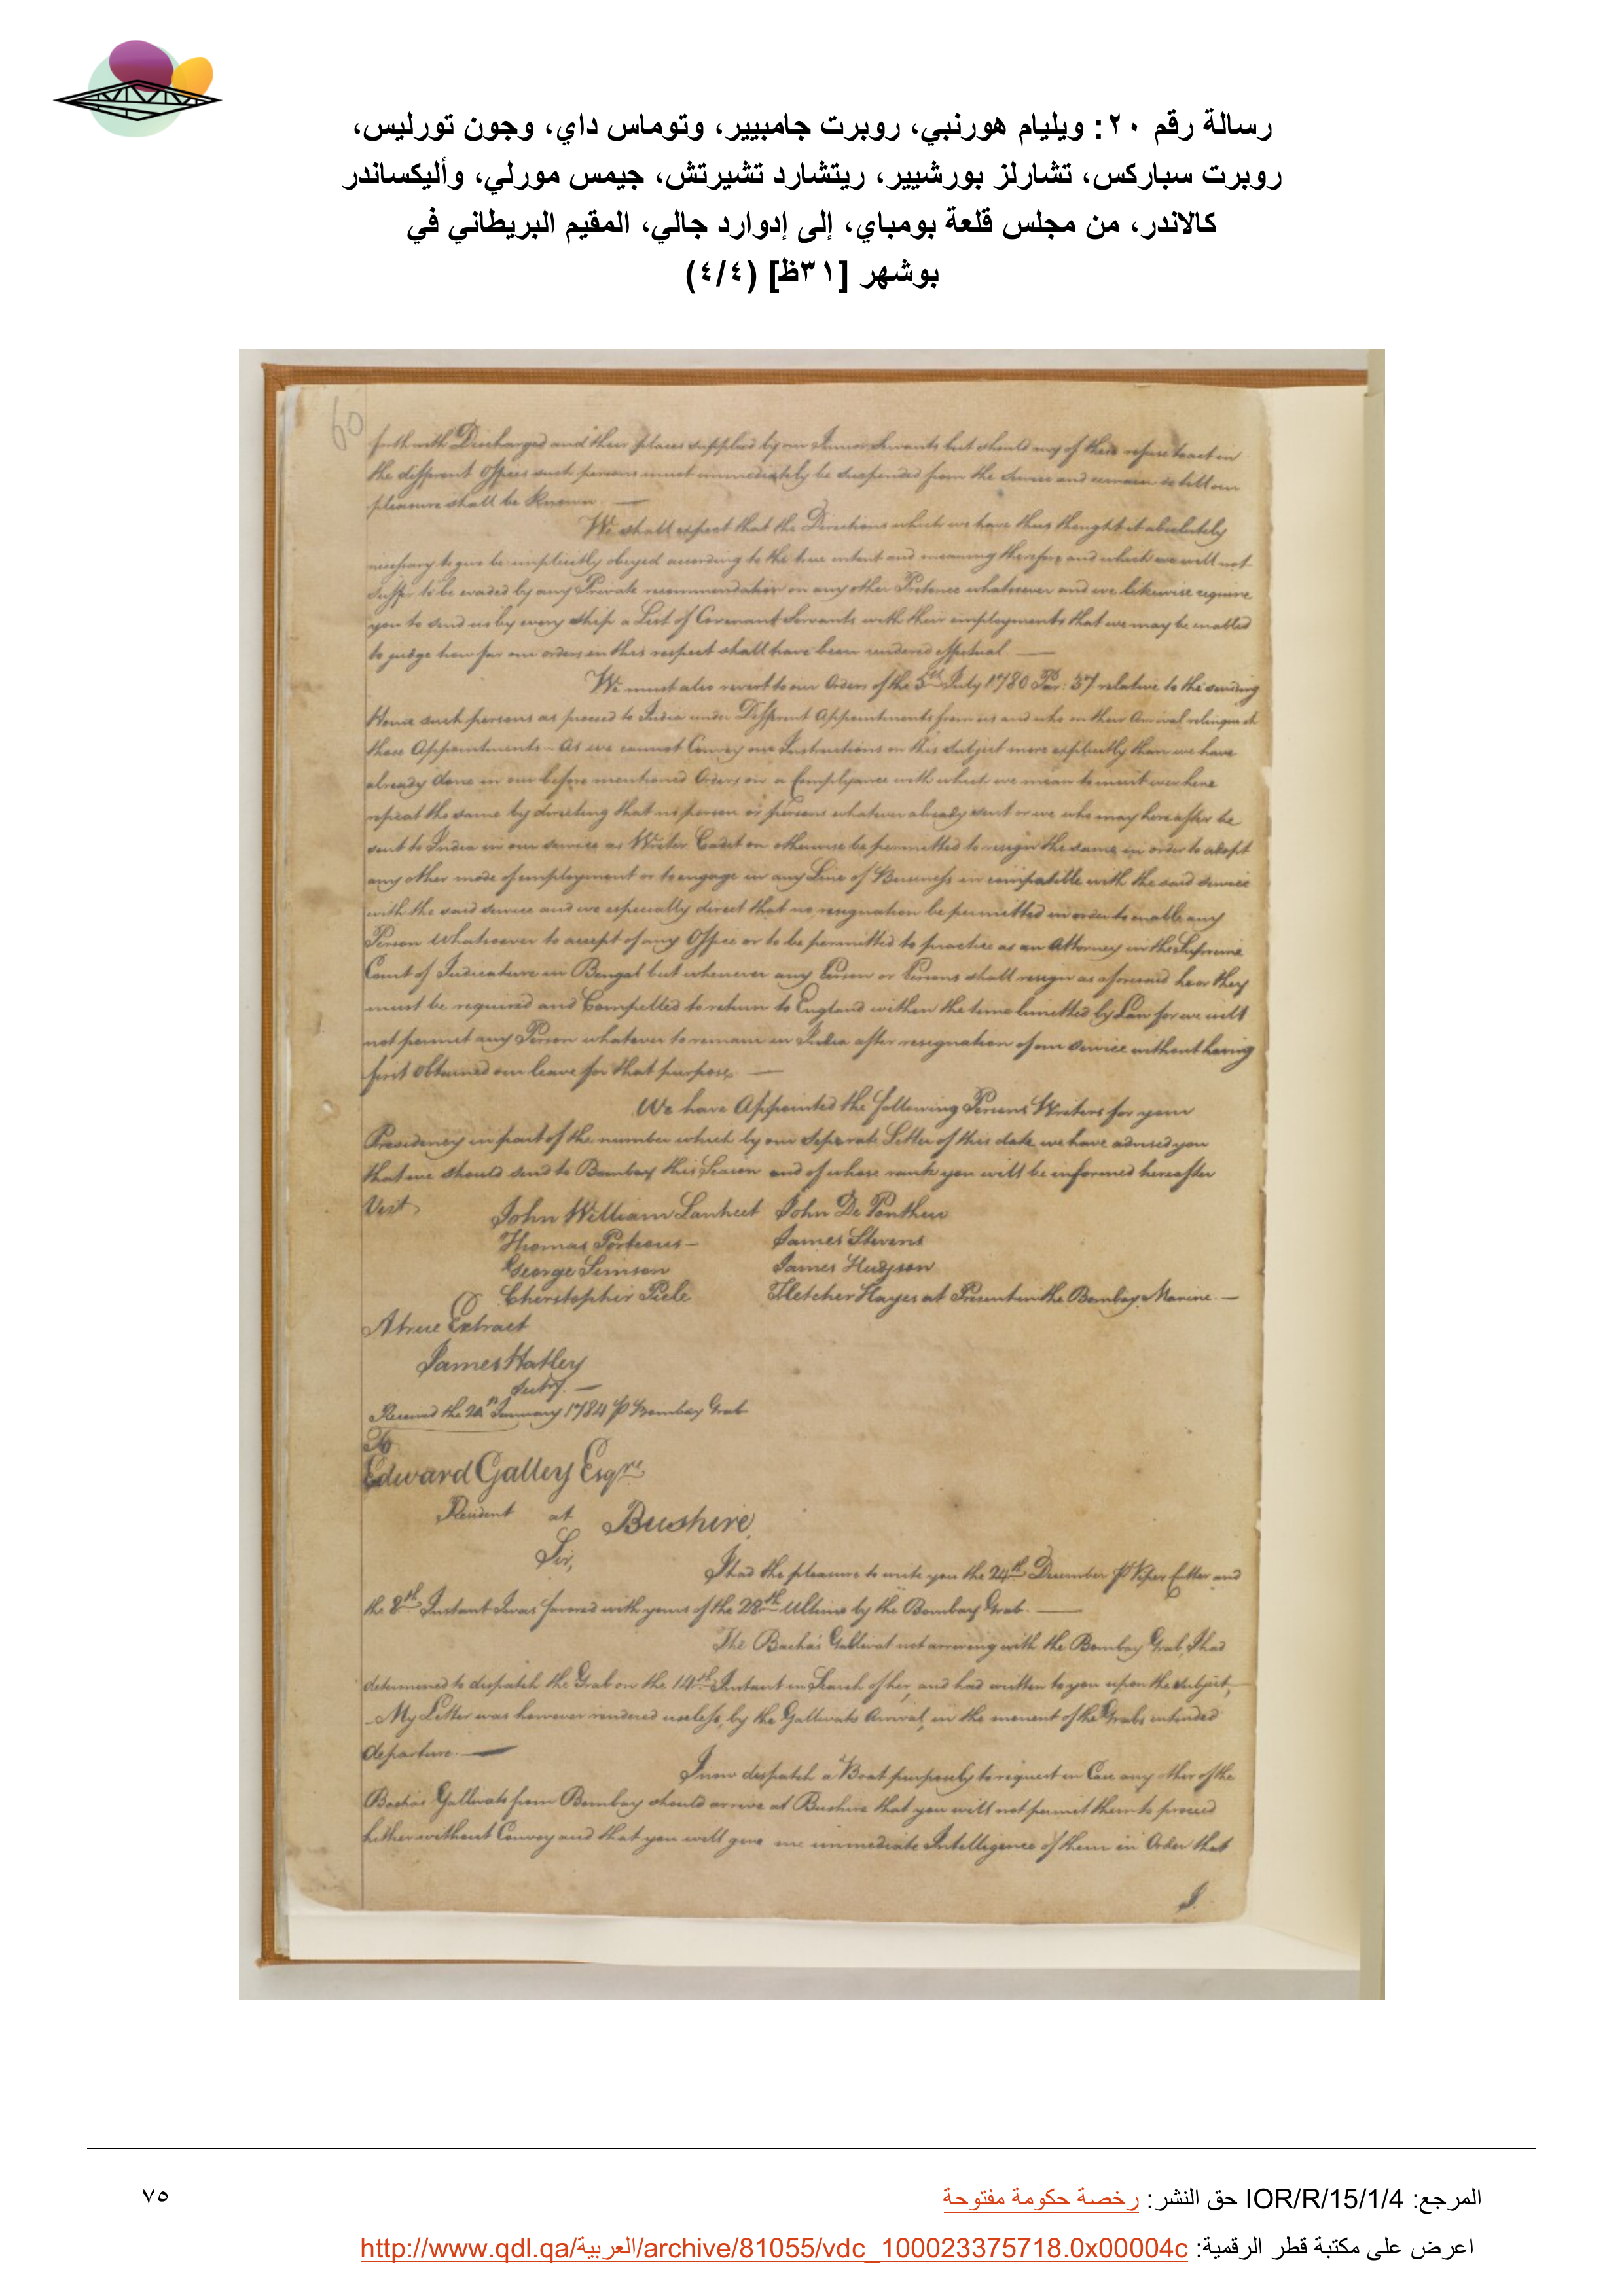 رسالة رقم ٢٠: ويليام هورنبي، روبرت جامبيير، وتوماس داي، وجون تورليس،
روبرت سباركس، تشارلز بورشيير، ريتشارد تشيرتش، جيمس مورلي، وأليكساندر
كالاندر، من مجلس قلعة بومباي، إلى إدوارد جالي، المقيم البريطاني في
بوشهر [٣١ظ] (٤/٤)
60
forthwith Discharged and their places supplied by our Junior Servants but should any of them refuse to act in
the different Offices such persons must immediately be suspended from the Service and remain so till our
pleasure shall be known.
We shall expect that the Directions which we have thus thought it absolutely
necessary to give be implicitly obeyed according to the true intent and meaning thereof, and which we will not
suffer to be evaded by any Private recommendation or any other Pretence whatsoever and we likewise require
you to send us by every ship a List of Covenant Servants with their employments that we may be enabled
to judge how far our orders in this respect shall have been rendered effectual.
We must also revert to our Orders of the 5th July 1780 Par: 37 relative to the sending
Home such persons as proceed to India under Different Appointments from us and who on their Arrival relinquish
those Appointments - As we cannot Convey our Instructions on this Subject more explicitly than we have
already done in our before mentioned Orders on a Complyance with which we mean to insist we here
repeat the same by directing that no person or persons whatever already sent or who may hereafter be
sent to India in our service as Writer Cadet or otherwise be permitted to resign the same in order to adopt
any other mode of employment or to engage in any Line of Business incompatible with the said service
with the said service and we especially direct that no resignation be permitted in order to enable any
Person Whatsoever to accept of any Office or to be permitted to practice as an Attorney in the Supreme
Court of Judicature in Bengal but whenever any Person or Persons shall resign as aforesaid he or they
must be required and Compelled to return to England within the time limitted by Law for we will
not permit any Person whatever to remain in India after resignation of our Service without having
first obtained our leave for that purpose.
We have Appointed the following Persons Writers for your
Presidency in part of the number which by our Separate Letter of this date we have advised you
that we should send to Bombay this Season and of whose rank you will be informed hereafter
Vizt. John William Lanheet John De Ponthieu
Thomas Porteous - James Stevens
George Simson James Hudson
Christopher Piele Fletcher Hayes at Present in the Bombay Marine. -
A true Extract
James Hatley
Secty. -
Received the January 1784 p Bombay Grab
To
Edward Galley Esqre.
Resident at Bushire,
Sir,
I had the pleasure to write you the 24th December p Viper Cutter and
the 8th Instant I was favored with yours of the 28th Ultimo by the Bombay Grab. -
The Bacha's Gallivat not arriving with the Bombay Grab, I had
determined to despatch the Grab on the 14th Instant in Search of her, and had written to you upon the subject,
- My Letter was however rendered useless, by the Gallivats Arrival, in the moment of the Grabs intended
departure. -
I now despatch a Boat purposely to request in Case any other of the
Bacha's Gallivats from Bombay should arrive at Bushire that you will not permit them to proceed
hither without Convoy and that you will give me immediate Intelligence of them in Order that
I
المرجع: IOR/R/15/1/4 حق النشر: رخصة حكومة مفتوحة
٧٥
اعرض على مكتبة قطر الرقمية: http://www.qdl.qa/العربية/archive/81055/vdc_100023375718.0x00004c